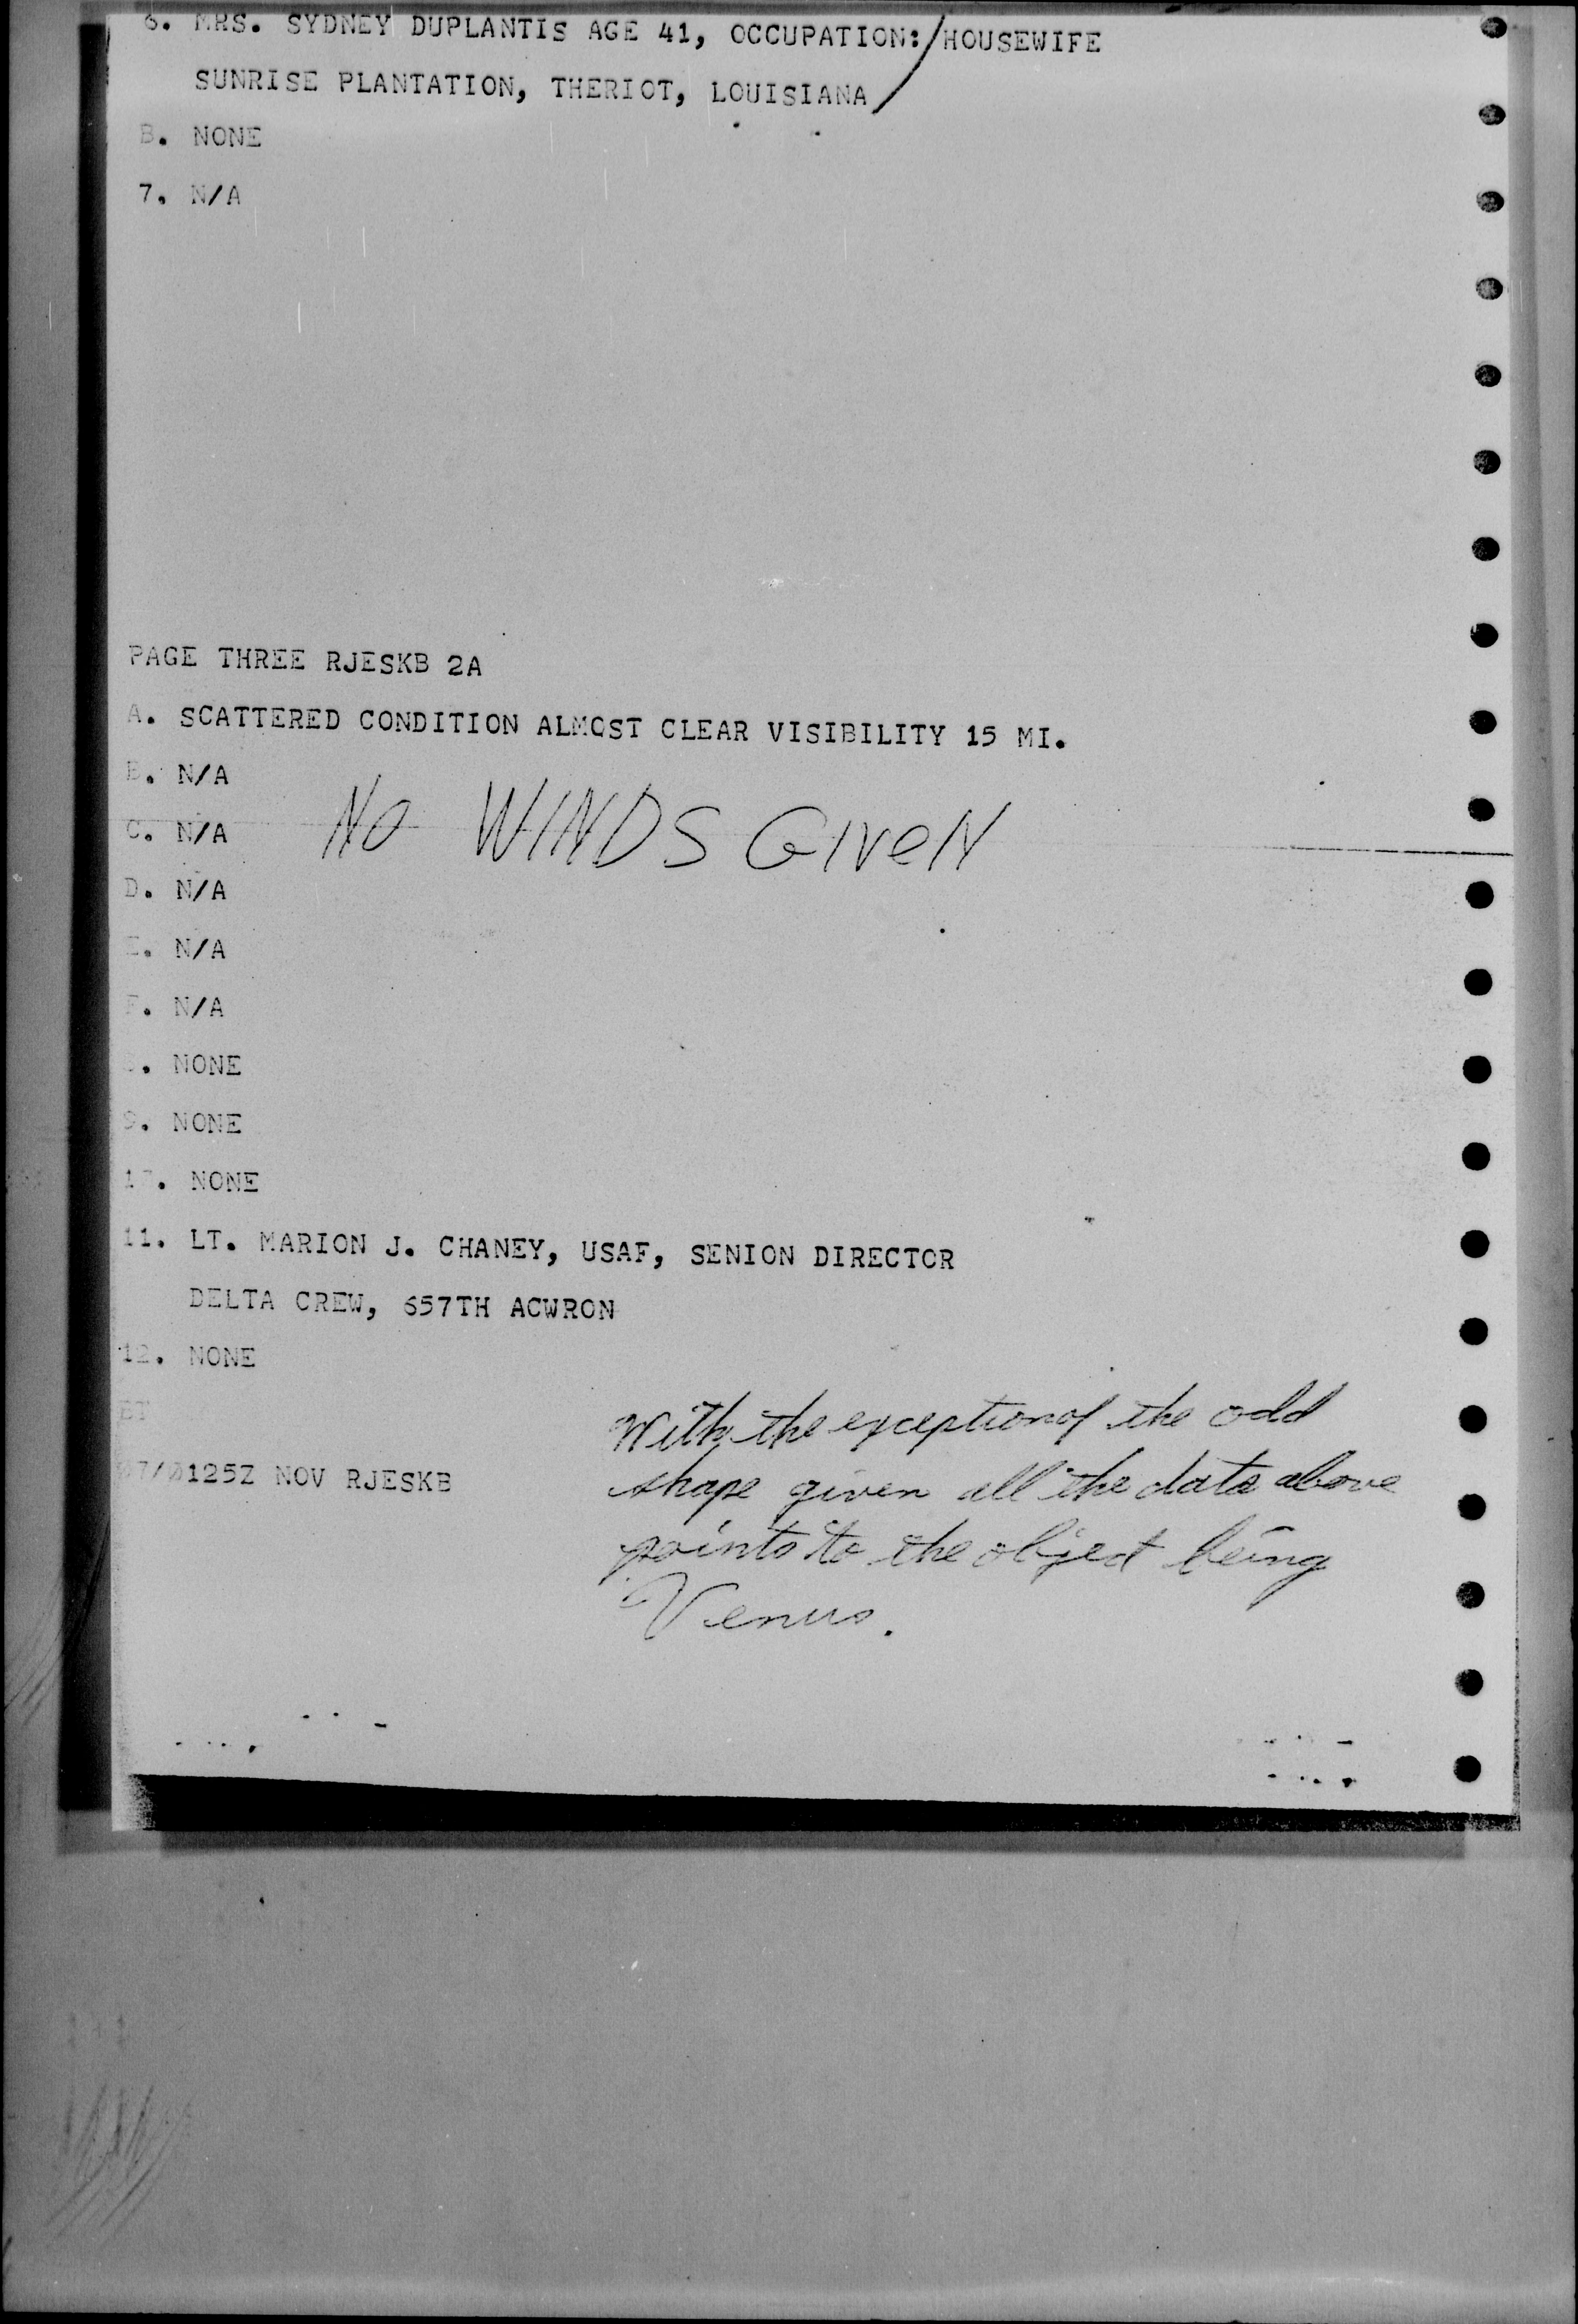 6. MRS. SYDNEY DUPLANTIS AGE 41, OCCUPATION:/HOUSEWIFE
SUNRISE PLANTATION, THERIOT, LOUISIANA
B. NONE
7. N/A
PAGE THREE RJESKB 2A
A. SCATTERED CONDITION ALMOST CLEAR VISIBILITY 15 MI.
B. N/A
C. N/A
NO WINDS GIVEN
D. N/A
E. N/A
F. N/A
. NONE
9. NONE
1 . NONE
11. LT. MARION J. CHANEY, USAF, SENION DIRECTOR
DELTA CREW, 657TH ACWRON
12. NONE
BT
07/0125Z NOV RJESKB
With the exception of the odd
shape given all the data above
points to the object being
Venus.